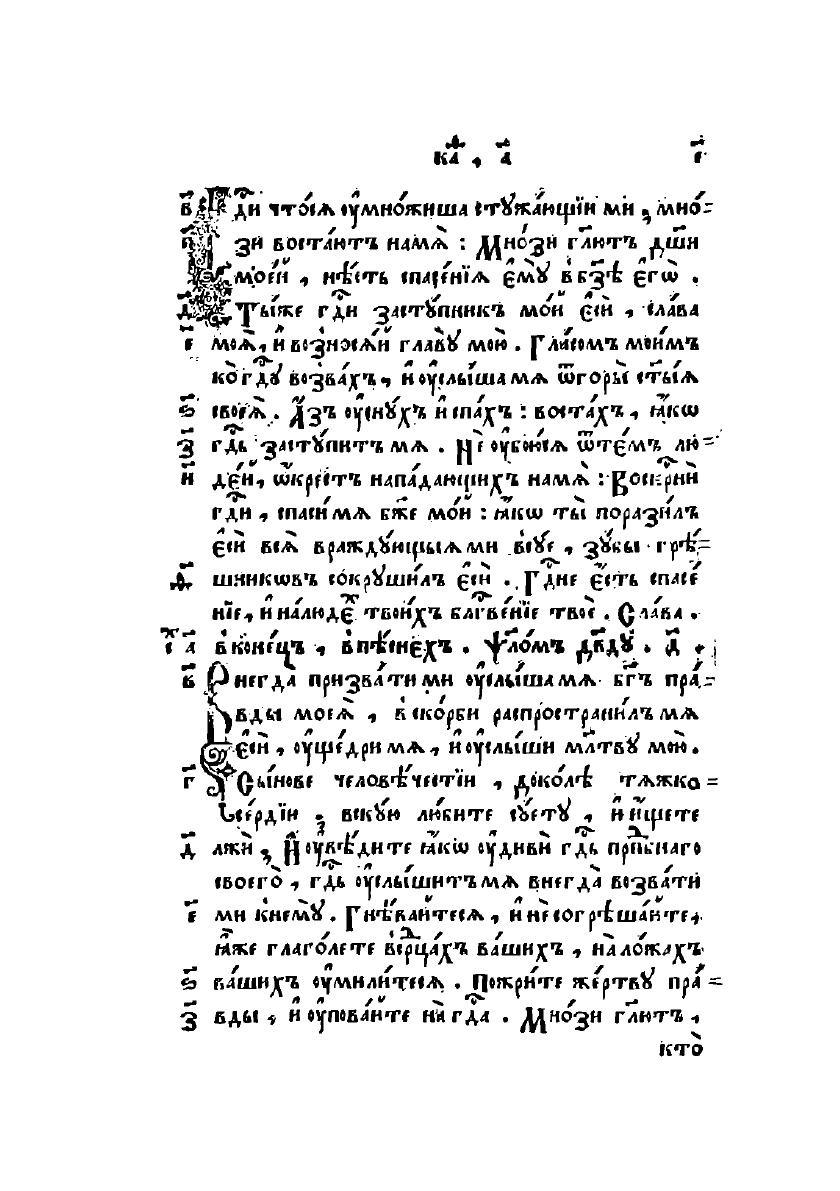 каѳ҃ , а҃ є҃
в҃ Гдⷭ҇и что́сѧ ᲂу҆мно́жиша стꙋжа́ющїи ми , мно́=
г҃ зи воста́ютъ намѧ̀ : Мно́зи гл҃ютъ дш҃и
мое́й , нѣ́сть спасе́нїѧ є҆мꙋ̀ вбз҃ѣ є҆гѡ̀ .
д҃ Ты́же гдⷭ҇и застꙋ́пникъ мо́й є҆сѝ , сла́ва
моѧ̀ , и҆ возносѧ́й главꙋ̀ мою̀ . Гла́сомъ мои́мъ
ко̀ гдⷭ҇ꙋ воззва́хъ , и҆ ᲂу҆слы́ша мѧ ѿгоры̀ ст҃ы́ѧ
ѕ҃ своеѧ̀ . А҆́зъ ᲂу҆снꙋ́хъ и҆ спа́хъ : воста́хъ , ꙗ҆́кѡ
з҃ гдⷭ҇ь застꙋ́питъ мѧ . Не ᲂу҆бою́сѧ ѿте́мъ лю=
и҃ де́й , ѡ҆́крестъ напада́ющихъ намѧ̀ : Воскрⷭ҇нѝ
гдⷭ҇и , спаси́ мѧ бж҃е мо́й : ꙗ҆́кѡ ты̀ порази́лъ
є҆сѝ всѧ̀ враждꙋ́ющыѧ ми всꙋ́е , зꙋ́бы грѣ́=
ѳ҃ шникѡвъ сокрꙋши́лъ є҆сѝ . Гдⷭ҇не є҆́сть спасе́
нїе , и҆ на́людеⷯ твои́хъ блгⷭ҇ве́нїе твоѐ . Сла́ва .
сⷯ а҃ вконе́цъ , впѣ́снеⷯ . Ѱало́мъ дв҃дꙋ . д҃ .
в҃ Внегда̀ призва́ти ми ᲂу҆слы́ша мѧ бг҃ъ пра́=
вды моеѧ̀ , вско́рби распространи́лъ мѧ
є҆сѝ , ᲂу҆ще́дри мѧ , и҆ ᲂу҆слы́ши мл҃твꙋ мою̀ .
г҃ Сы́нове человѣ́честїи , доко́лѣ тѧжко=
се́рдїи , вскꙋ́ю лю́бите сꙋетꙋ̀ , и҆ и҆́щете
д҃ лжѝ , И҆ ᲂу҆вѣ́дите ꙗ҆́кѡ ᲂу҆дивѝ гдⷭ҇ь прпⷣбнаго
своего̀ , гдⷭ҇ь ᲂу҆слы́шитъ мѧ внегда̀ возва́ти
е҃ ми кнемꙋ̀ . Гнѣ́вайтесѧ , и҆ не́согрѣша́йте ,
ꙗ҆́же глаго́лете в срⷣца́хъ ва́шихъ , на́ло́жахъ
ѕ҃ ва́шихъ ᲂу҆мили́тесѧ . Пожри́те же́ртвꙋ пра́=
з҃ вды , и҆ ᲂу҆пова́йте на́ гдⷭ҇а . Мно́зи гл҃ютъ ,
кто̀